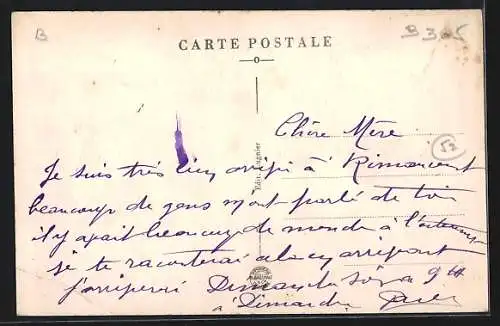 B
B 305
CARTE POSTALE
52
Chère Mère
Je suis très bien arrivé à Rimaucourt
beaucoup de gens m'ont parlé de toi
il y avait beaucoup de monde à l'enterrement
je te raconterai cela en arrivant
j'arriverai Dimanche soir a 9 H
à Dimanche